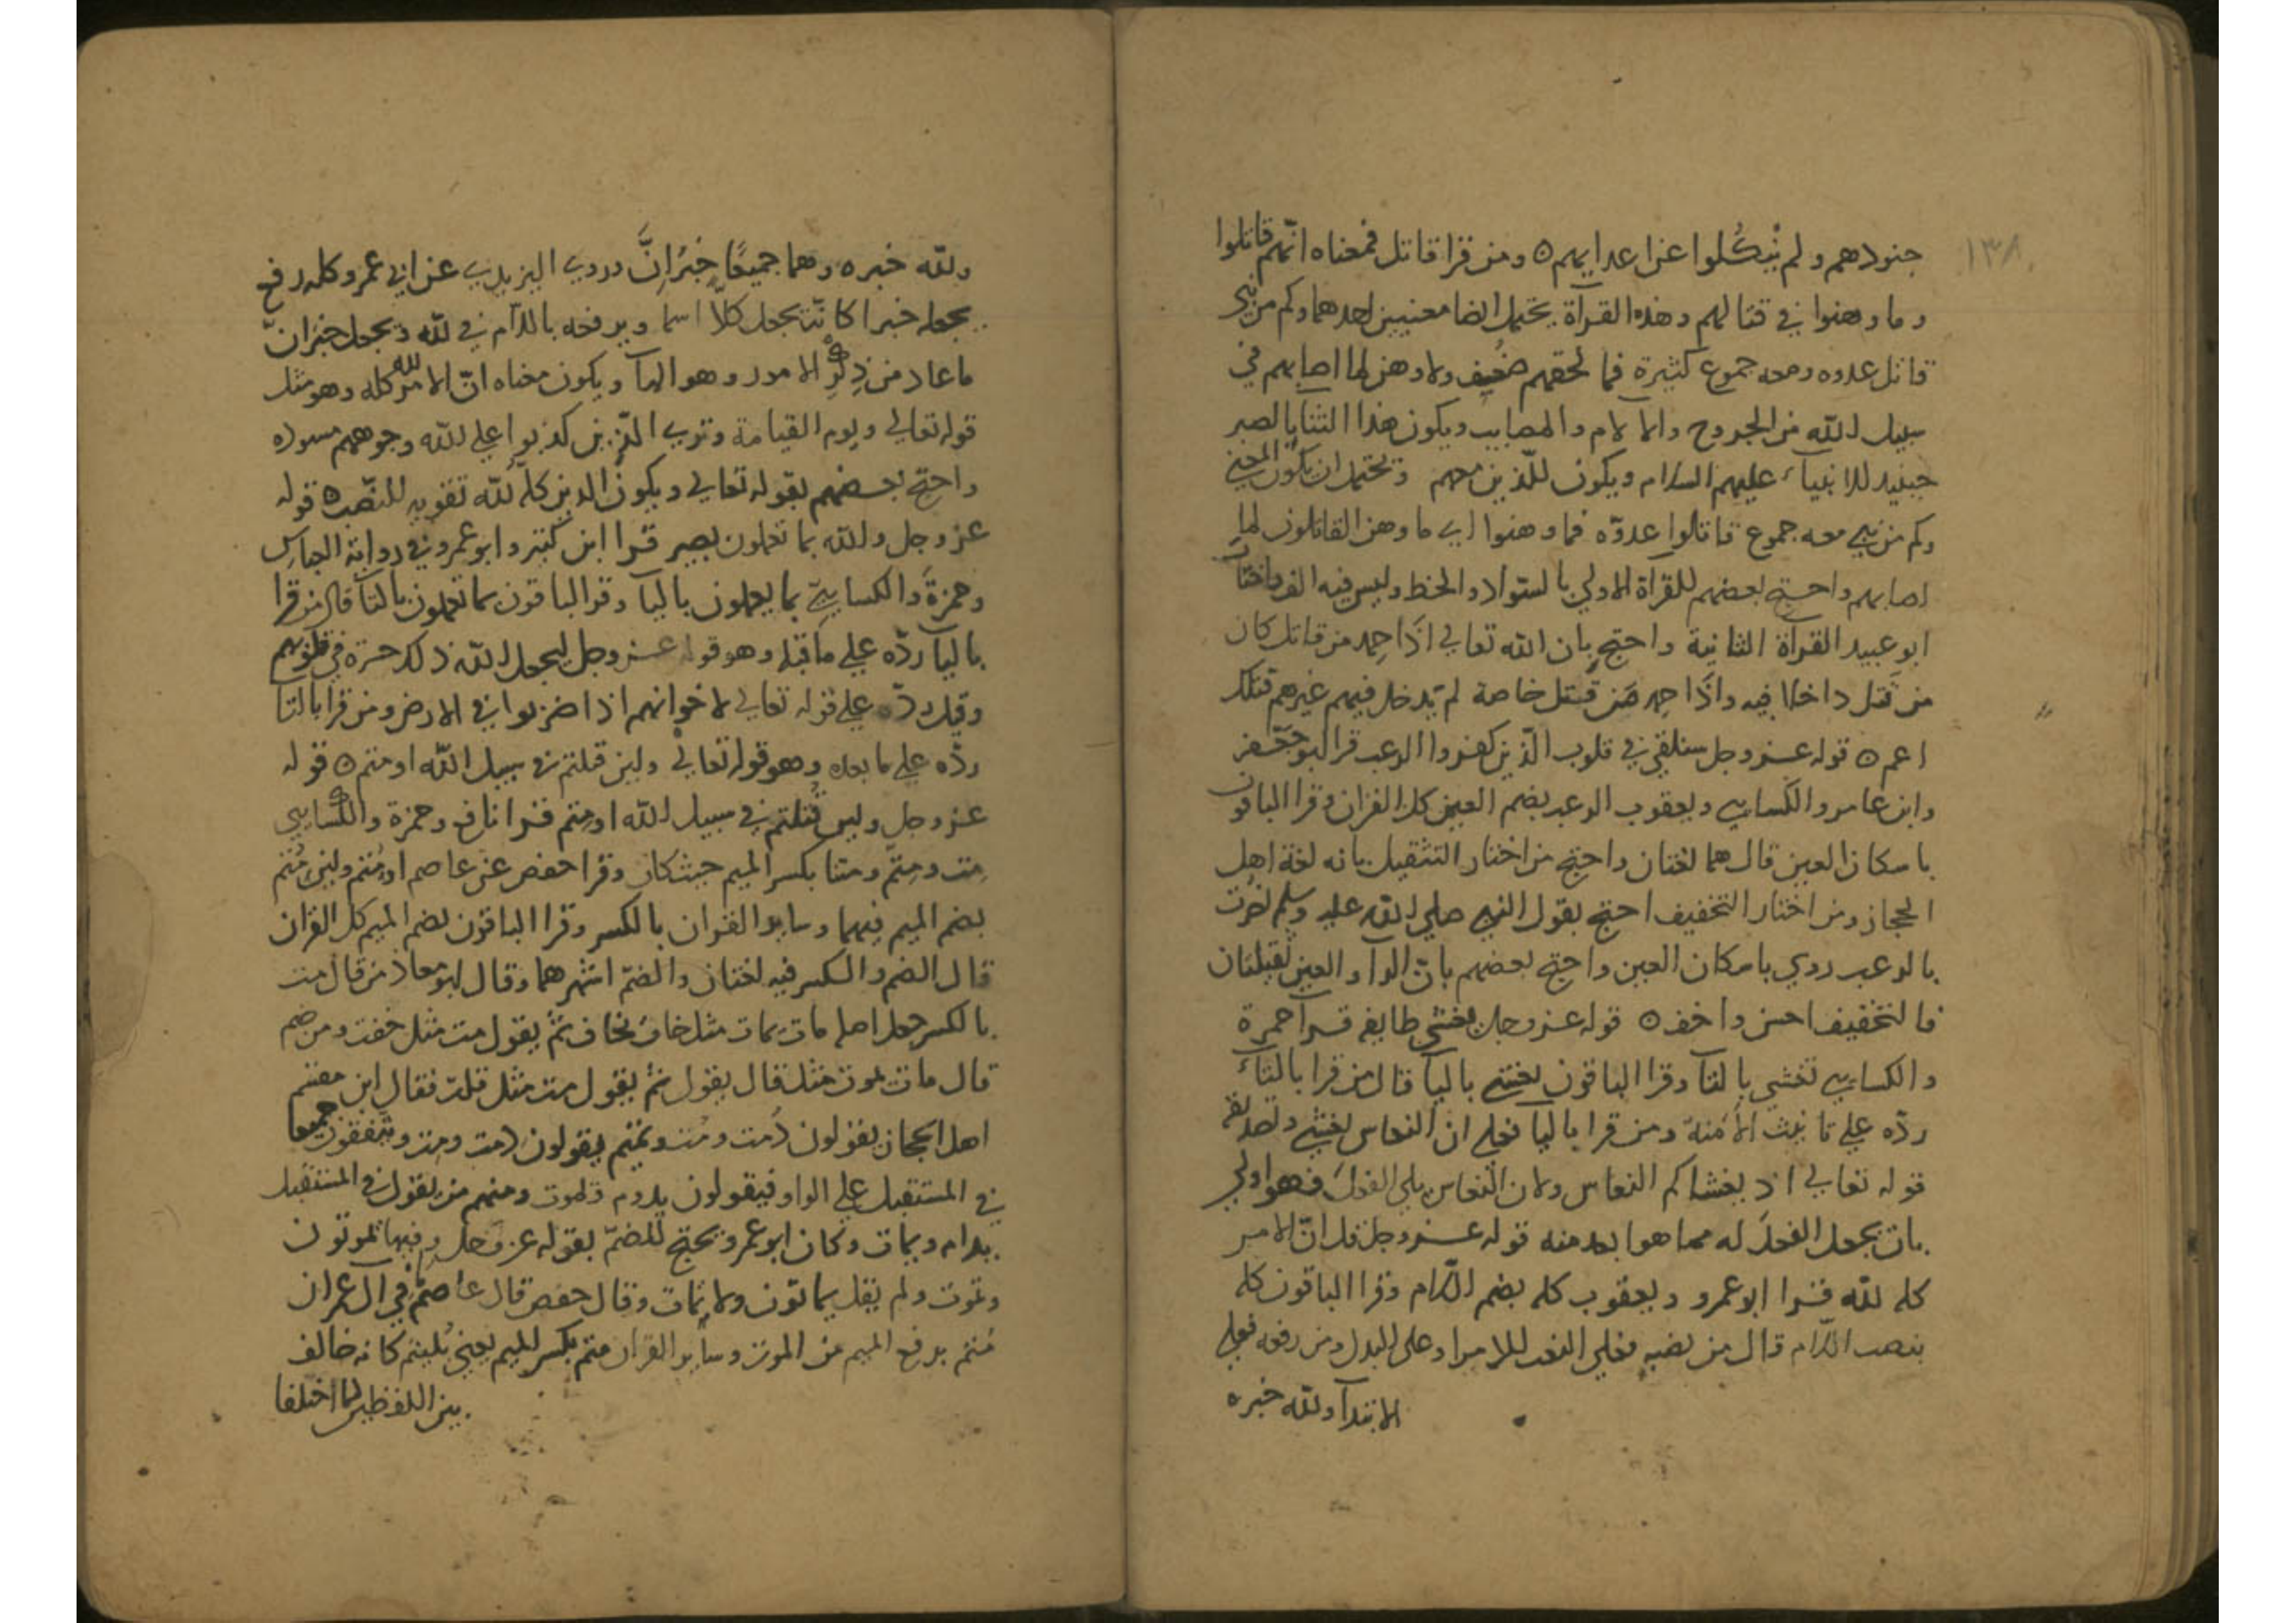 ١٣٨
جنودهم ولم ينكلوا عن اعدايهم ه ومن قرا قاتل فمعناه انهم قاتلوا
وما وهنوا في قتالهم وهذه القرآة يحتمل ايضا معنيين احدهما وكم من نبي
قاتل عدوه ومعه جموع كثيرة فما لحقهم ضعف ولا وهن لما اصابهم في
سبيل الله من الجروح والالام والمصايب ويكون هذا الثنا بالصبر
حينيد للانبيآء عليهم السلام ويكون للذين معهم ويحتمل ان يكون المعني
وكم من نبي معه جموع قاتلوا عدوّه فما وهنوا اي ما وهن القاتلون لما
اصابهم واحتج بعضهم للقرآة الاولي بالسواد والخط وليس فيه الف واختار
ابو عبيد القرآة الثانية واحتج بان الله تعالي اذا حمد من قاتل كان
من قتل داخلا فيه واذا حمد من قتل خاصة لم يدخل فيهم غيرهم فتلك
اعم ه قوله عز وجل سنلقي في قلوب الذين كفروا الرعب قرا ابو جعفر
وابن عامر والكسايي ويعقوب الرعب بضم العين كل القران وقرا الباقون
باسكان العين قال هما لغتان واحتج من اختار التثقيل بانه لغة اهل
الحجاز ومن اختار التخفيف احتج بقول النبي صلي الله عليه وسلم نصرت
بالرعب روي باسكان العين واحتج بعضهم بانّ الرا والعين ثقيلتان
فالتخفيف احسن واخف ه قوله عز وجل يغشي طايفه قرآ حمزة
والكسايي تغشي بالتآ وقرا الباقون يغشي باليآ قال من قرا بالتآء
ردّه علي تانيث الأمنة ومن قرا باليا فعلي ان النعاس يغشي وتصديقه
قوله تعالي اذ يغشاكم النعاس ولان النعاس يلي الفعل فهو اولي
بان يجعل الفعل له مما هو ابعد منه قوله عز وجل قل انّ الامر
كله لله قرا ابو عمرو ويعقوب كله بضم اللام وقرا الباقون كله
بنصب اللام قال من نصبه فعلي النعت للامر او على البدل ومن رفعه فعلي
الابتدآ ولله خبره
ولله خبره وهما جميعًا خبر انّ وروي اليزيدي عن ابي عمرو كله رفع
يجعله خبرا كانّه يجعل كلّا اسما ويرفعه باللام في لله ويجعل خبر انّ
ما عاد من ذكر الامور وهو الهآ ويكون معناه انّ الامر كله لله وهو مثل
قوله تعالي ويوم القيامة تري الذين كذبوا علي الله وجوههم مسوده
واحتج بعضهم بقوله تعالي ويكون الدين كله لله تقويه للنصب ه قوله
عز وجل والله بما تعملون بصير قرا ابن كثير وابو عمرو في رواية العباس
وحمزة والكسايي بما يعملون باليا وقرا الباقون بما تعملون بالتآ قال من قرا
باليآ ردّه علي ما قبله وهو قوله عز وجل ليجعل الله ذلك حسرة في قلوبهم
وقيل ردّه علي قوله تعالي لاخوانهم اذا ضربوا في الارض ومن قرا بالتا
ردّه علي ما بعده وهو قوله تعالي ولين قتلتم في سبيل الله او متم ه قوله
عز وجل ولين قتلتم في سبيل الله او متم قرا نافع وحمزة والكسايي
مت ومتم ومتنا بكسر الميم حيث كان وقرا حفص عن عاصم او متم ولين متم
بضم الميم فيهما وساير القران بالكسر وقرا الباقون بضم الميم كل القران
قال الضم والكسر فيه لغتان والضمّ اشهرهما وقال ابو معاذ من قال مت
بالكسر جعل اصله مات يمات مثل خاف يخاف ثم يقول مت مثل خفت ومن ضم
قال مات يموت مثل قال يقول ثم يقول مت مثل قلت فقال ابن مقسم
اهل الحجاز يقولون دمت ومت وتميم يقولون دمت ومت ويتفقون جميعا
في المستقبل علي الواو فيقولون يدوم ويموت ومنهم من يقول في المستقبل
يدام ويمات وكان ابو عمرو يحتج للضمّ بقوله عز وجل وفيها تموتون
ونموت ولم يقل يماتون ولا نمات وقال حفص قال عاصم في ال عمران
متم برفع الميم من الموت وساير القران متم بكسر الميم يعني بليتم كانه خالف
بين اللفظين لما اختلفا